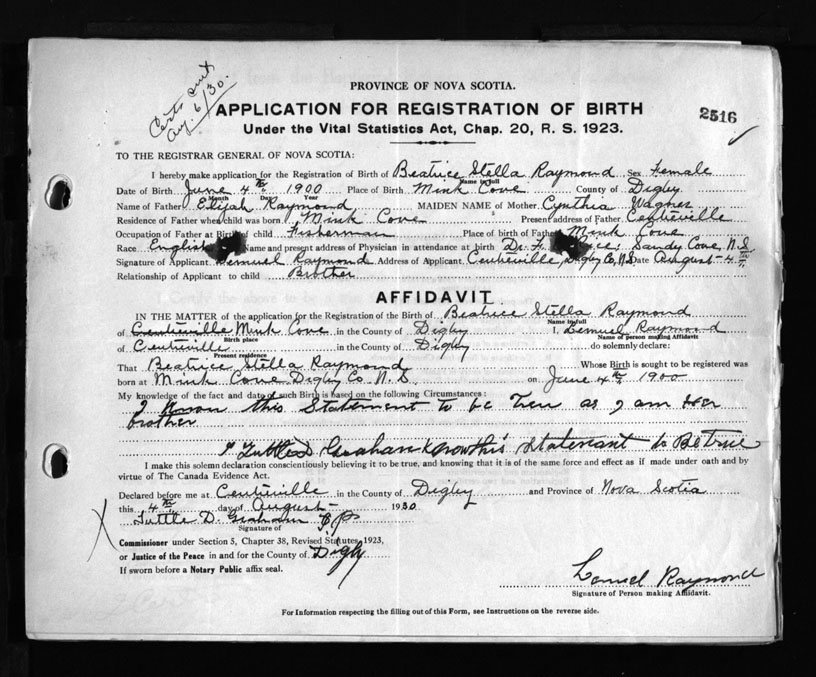 Certs sent
Aug. 6/30.
PROVINCE OF NOVA SCOTIA.
APPLICATION FOR REGISTRATION OF BIRTH
2516
Under the Vital Statistics Act, Chap. 20, R. S. 1923.
TO THE REGISTRAR GENERAL OF NOVA SCOTIA:
I hereby make application for the Registration of Birth of Beatrice Stella Raymond Sex Female
Name in full
Date of Birth June 4th 1900 Place of Birth Mink Cove County of Digby
Month Day Year
Name of Father Elijah Raymond MAIDEN NAME of Mother Cynthia Wagner
Residence of Father when child was born Mink Cove Present address of Father Centreville
Occupation of Father at Birth of child Fisherman Place of birth of Father Mink Cove
Race English Name and present address of Physician in attendance at birth Dr. F. Rice; Sandy Cove, N.S
Signature of Applicant Lemuel Raymond Address of Applicant Centreville, Digby Co, N.S. Date August - 4
Relationship of Applicant to child Brother
AFFIDAVIT
IN THE MATTER of the application for the Registration of the Birth of Beatrice Stella Raymond
Name in full
of Centreville Mink Cove in the County of Digby I, Lemuel Raymond
Birth place Name of person making Affidavit
of Centreville in the County of Digby do solemnly declare:
Present residence
That Beatrice Stella Raymond Whose Birth is sought to be registered was
born at Mink Cove Digby Co. N.S. on June 4th 1900
My knowledge of the fact and date of such Birth is based on the following Circumstances:
I Know this Statement to be Treu as I am Her
brother
I Tuttle D Graham Know this Stateiant to Be true
I make this solemn declaration conscientiously believing it to be true, and knowing that it is of the same force and effect as if made under oath and by
virtue of The Canada Evidence Act.
Declared before me at Centreville in the County of Digby and Province of Nova Scotia
this 4th day of August - 1930
Tuttle D. Graham J P
Signature of
Commissioner under Section 5, Chapter 38, Revised Statutes, 1923,
or Justice of the Peace in and for the County of Digby
If sworn before a Notary Public affix seal.
Lemuel Raymond
Signature of Person making Affidavit.
For Information respecting the filling out of this Form, see Instructions on the reverse side.